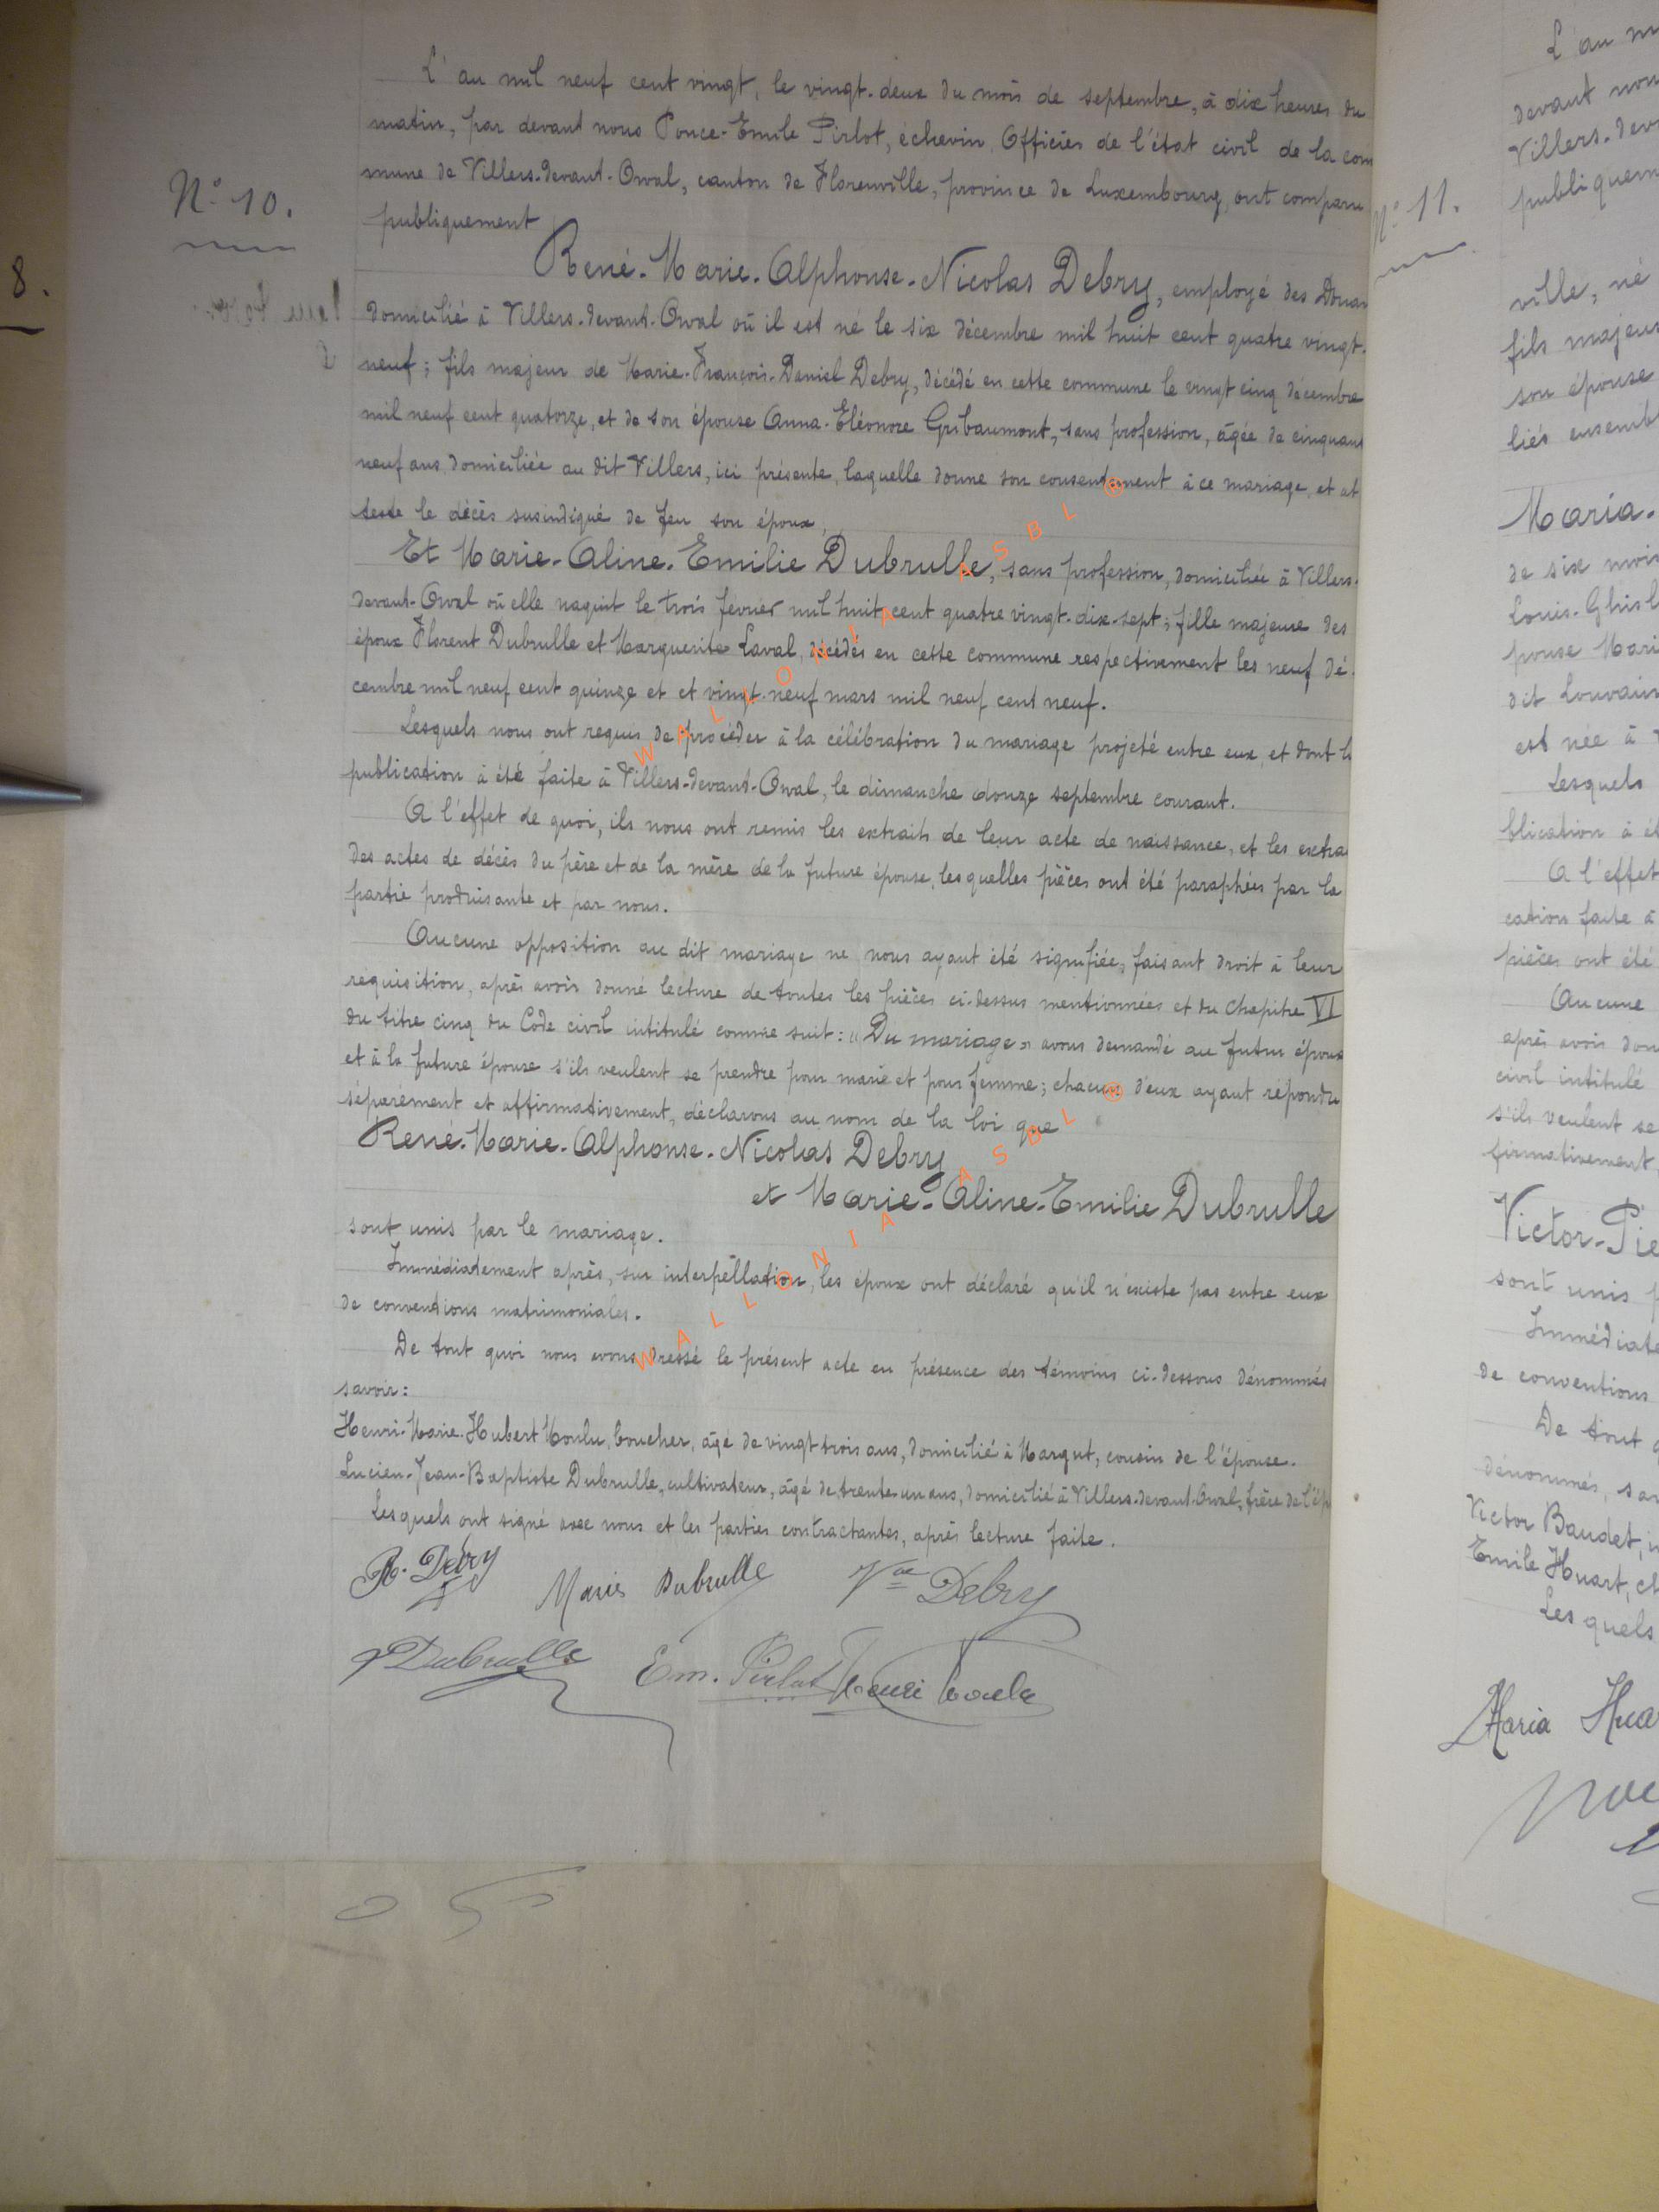 L'an mil neuf cent vingt, le vingt-deux du mois de septembre, à dix heures du
matin, par devant nous Ponce-Emile Pirlot, échevin, Officier de l'état civil de la com
N° 10.
mune de Villers-devant-Orval, canton de Florenville, province de Luxembourg, ont comparu
publiquement
8.
René-Marie-Alphonse-Nicolas Debry, employé des Douan
domicilié à Villers-devant-Orval où il est né le six décembre mil huit cent quatre vingt-
neuf; fils majeur de Marie-François-Daniel Debry, décédé en cette commune le vingt cinq décembre
mil neuf cent quatorze, et de son épouse Anna-Eléonore Gribaumont, sans profession, âgée de cinquant
neuf ans, domiciliée au dit Villers, ici présente, laquelle donne son consentement à ce mariage, et at
teste le décès susindiqué de feu son époux,
Et Marie-Aline-Emilie Dubrulle, sans profession, domiciliée à Villers-
devant-Orval où elle naquit le trois fevrier mil huit cent quatre vingt-dix-sept; fille majeure des
époux Florent Dubrulle et Marguerite Laval, décédés en cette commune respectivement les neuf dé-
cembre mil neuf cent quinze et et vingt-neuf mars mil neuf cent neuf.
Lesquels nous ont requis de procéder à la célébration du mariage projeté entre eux et dont la
publication à été faite à Villers-devant-Orval, le dimanche douze septembre courant.
A l'effet de quoi, ils nous ont remis les extraits de leur acte de naissance, et les extrai
des actes de décès du père et de la mère de la future épouse, lesquelles pièces ont été paraphées par la
partie produisante et par nous.
Aucune opposition au dit mariage ne nous ayant été signifiée, faisant droit à leur
requisition, après avoir donné lecture de toutes les pièces ci-dessus mentionnées et du Chapitre VI
du titre cinq du Code civil intitulé comme suit: "Du mariage" avons demandé au futur époux
et à la future épouse s'ils veulent se prendre pour marié et pour femme; chacun d'eux ayant répondu
séparément et affirmativement, déclarons au nom de la loi que
René-Marie-Alphonse-Nicolas Debry
et Marie-Aline-Emilie Dubrulle
sont unis par le mariage.
Immédiatement après, sur interpellation, les époux ont déclaré qu'il n'existe pas entre eux
de conventions matrimoniales.
De tout quoi nous avons dressé le présent acte en présence des témoins ci-dessous dénommés
savoir:
Henri-Marie-Hubert Moulu, boucher, âgé de vingt trois ans, domicilié à Margut, cousin de l'épouse.
Lucien-Jean-Baptiste Dubrulle, cultivateur, âgé de trente-un ans, domicilié à Villers-devant-Orval, frère de l'ép
Lesquels ont signé avec nous et les parties contractantes, après lecture faite.
R. Debry
Marie Dubrulle
Vve Debry
Dubrulle
Em. Pirlot
Henri Moulu
WALLONIA ASBL ®
WALLONIA ASBL ®
L'an m
devant nou
Villers-dev
publiquem
N° 11.
ville, né
fils majeur
son épouse
liés ensemb
Maria-
de six mois
Louis-Ghisl
pouse Mari
dit Louvain
est née à
Lesquels
blication à ét
A l'effet
cation faite à
pièces ont été
Aucune
après avoir don
civil intitulé
s'ils veulent se
firmativement,
Victor-Pie
sont unis p
Immédiate
de conventions
De tout q
dénommés, sav
Victor Baudet, i
Emile Huart, ch
Lesquels
Maria Huar